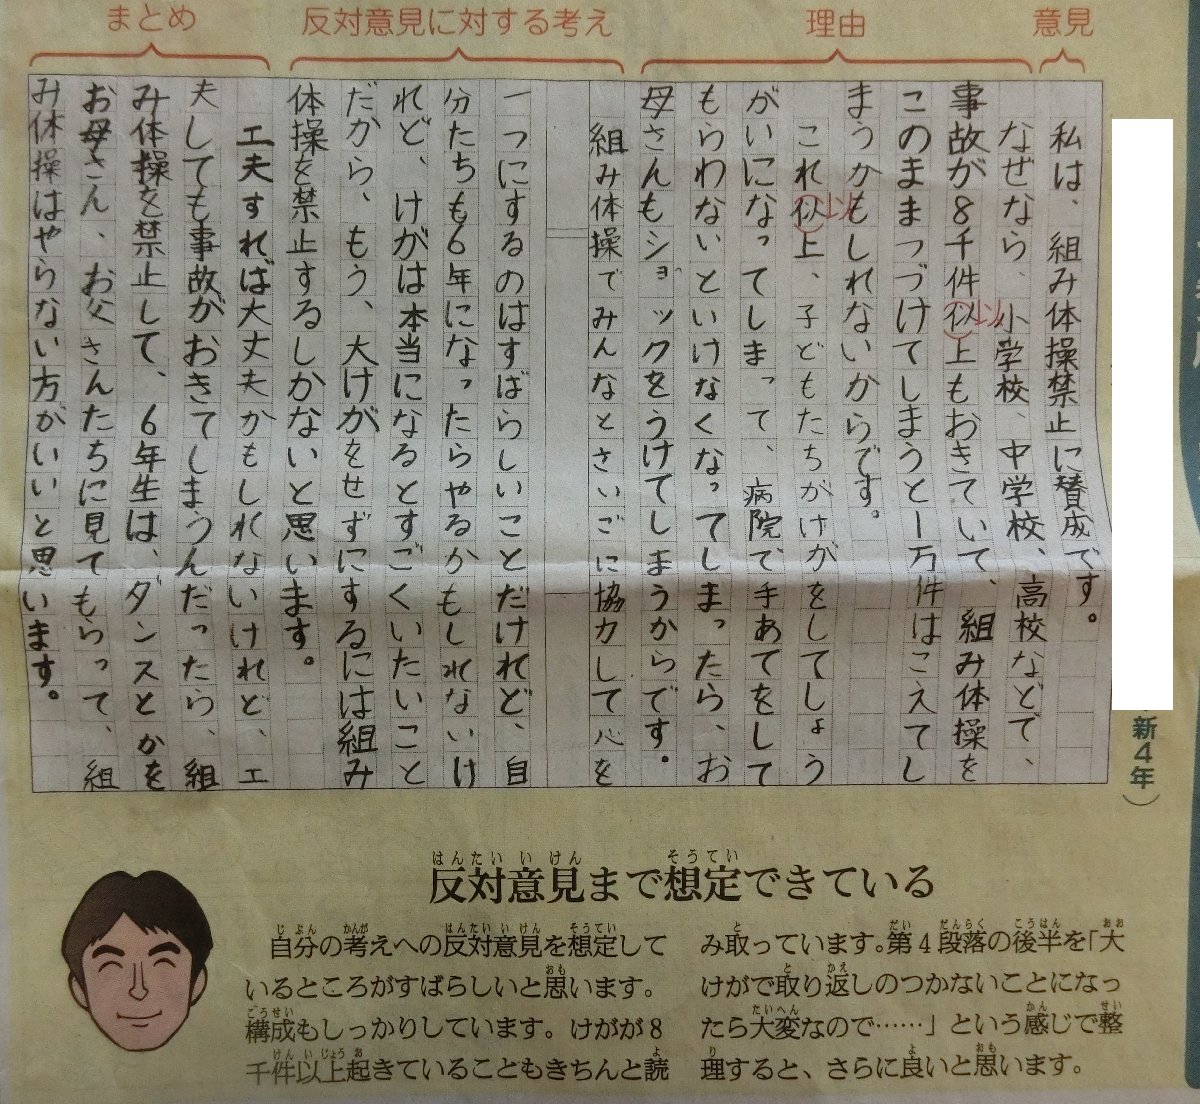 意見
理由
反対意見に対する考え
まとめ
新4年）
私は、組み体操禁止に賛成です。
なぜなら、小学校、中学校、高校などで、
以
事故が8千件似上もおきていて、組み体操を
このままつづけてしまうと1万件はこえてし
まうかもしれないからです。
以
これ似上、子どもたちがけがをしてしょう
がいになってしまって、病院で手あてをして
もらわないといけなくなってしまったら、お
母さんもショックをうけてしまうからです。
組み体操でみんなとさいごに協力して心を
一つにするのはすばらしいことだけれど、自
分たちも6年になったらやるかもしれないけ
れど、けがは本当になるとすごくいたいこと
だから、もう、大けがをせずにするには組み
体操を禁止するしかないと思います。
工夫すれば大丈夫かもしれないけれど、工
夫しても事故がおきてしまうんだったら、組
み体操を禁止して、6年生は、ダンスとかを
お母さん、お父さんたちに見てもらって、組
み体操はやらない方がいいと思います。
はんたいいけん そうてい
反対意見まで想定できている
じぶん かんが はんたいいけん そうてい
自分の考えへの反対意見を想定して
おも
いるところがすばらしいと思います。
こうせい
構成もしっかりしています。けがが8
けんいじょうお よ
千件以上起きていることもきちんと読
と だい だんらく こうはん おお
み取っています。第4段落の後半を「大
と かえ
けがで取り返しのつかないことになっ
たいへん かん せい
たら大変なので……」という感じで整
り よ おも
理すると、さらに良いと思います。